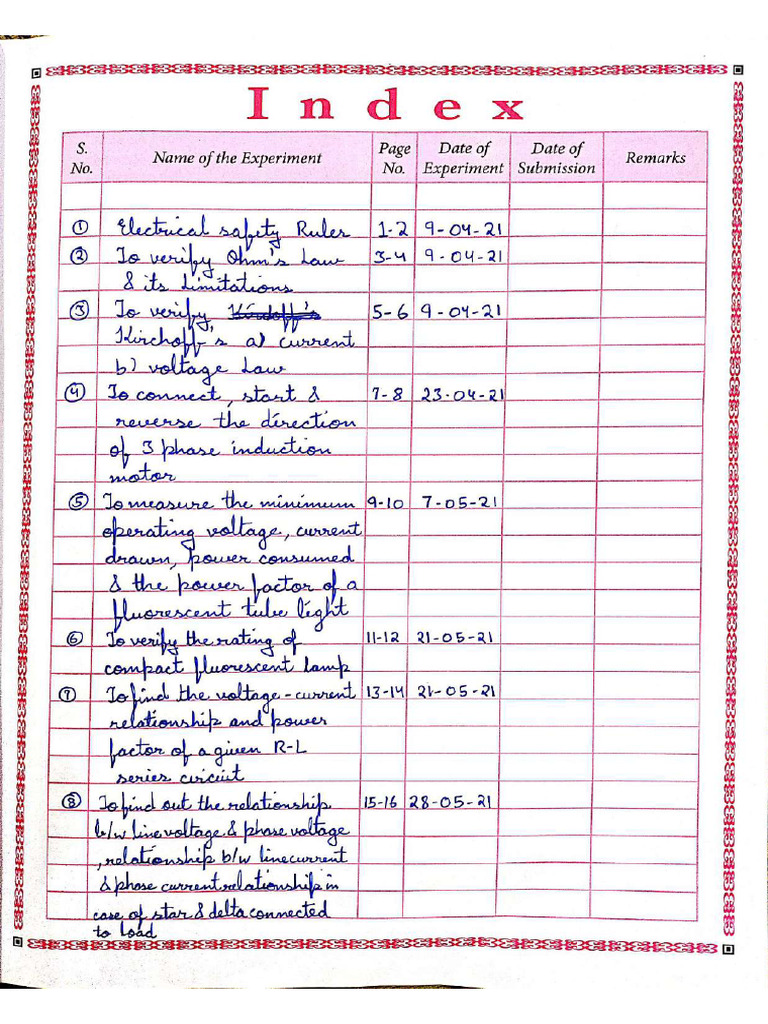 Index
S. No. Name of the Experiment Page No. Date of Experiment Date of Submission Remarks
① Electrical safety Rules 1-2 9-04-21
② To verify Ohm's Law 3-4 9-04-21
& its Limitations
③ To verify Kirdoff's 5-6 9-04-21
Kirchoff's a) current
b) voltage Law
④ To connect, start & 7-8 23-04-21
reverse the direction
of 3 phase induction
motor
⑤ To measure the minimum 9-10 7-05-21
operating voltage, current
drawn, power consumed
& the power factor of a
fluorescent tube light
⑥ To verify the rating of 11-12 21-05-21
compact fluorescent lamp
⑦ To find the voltage-current 13-14 21-05-21
relationship and power
factor of a given R-L
series circiut
⑧ To find out the relationship 15-16 28-05-21
b/w line voltage & phase voltage
, relationship b/w line current
& phase current relationship in
case of star & delta connected
to load